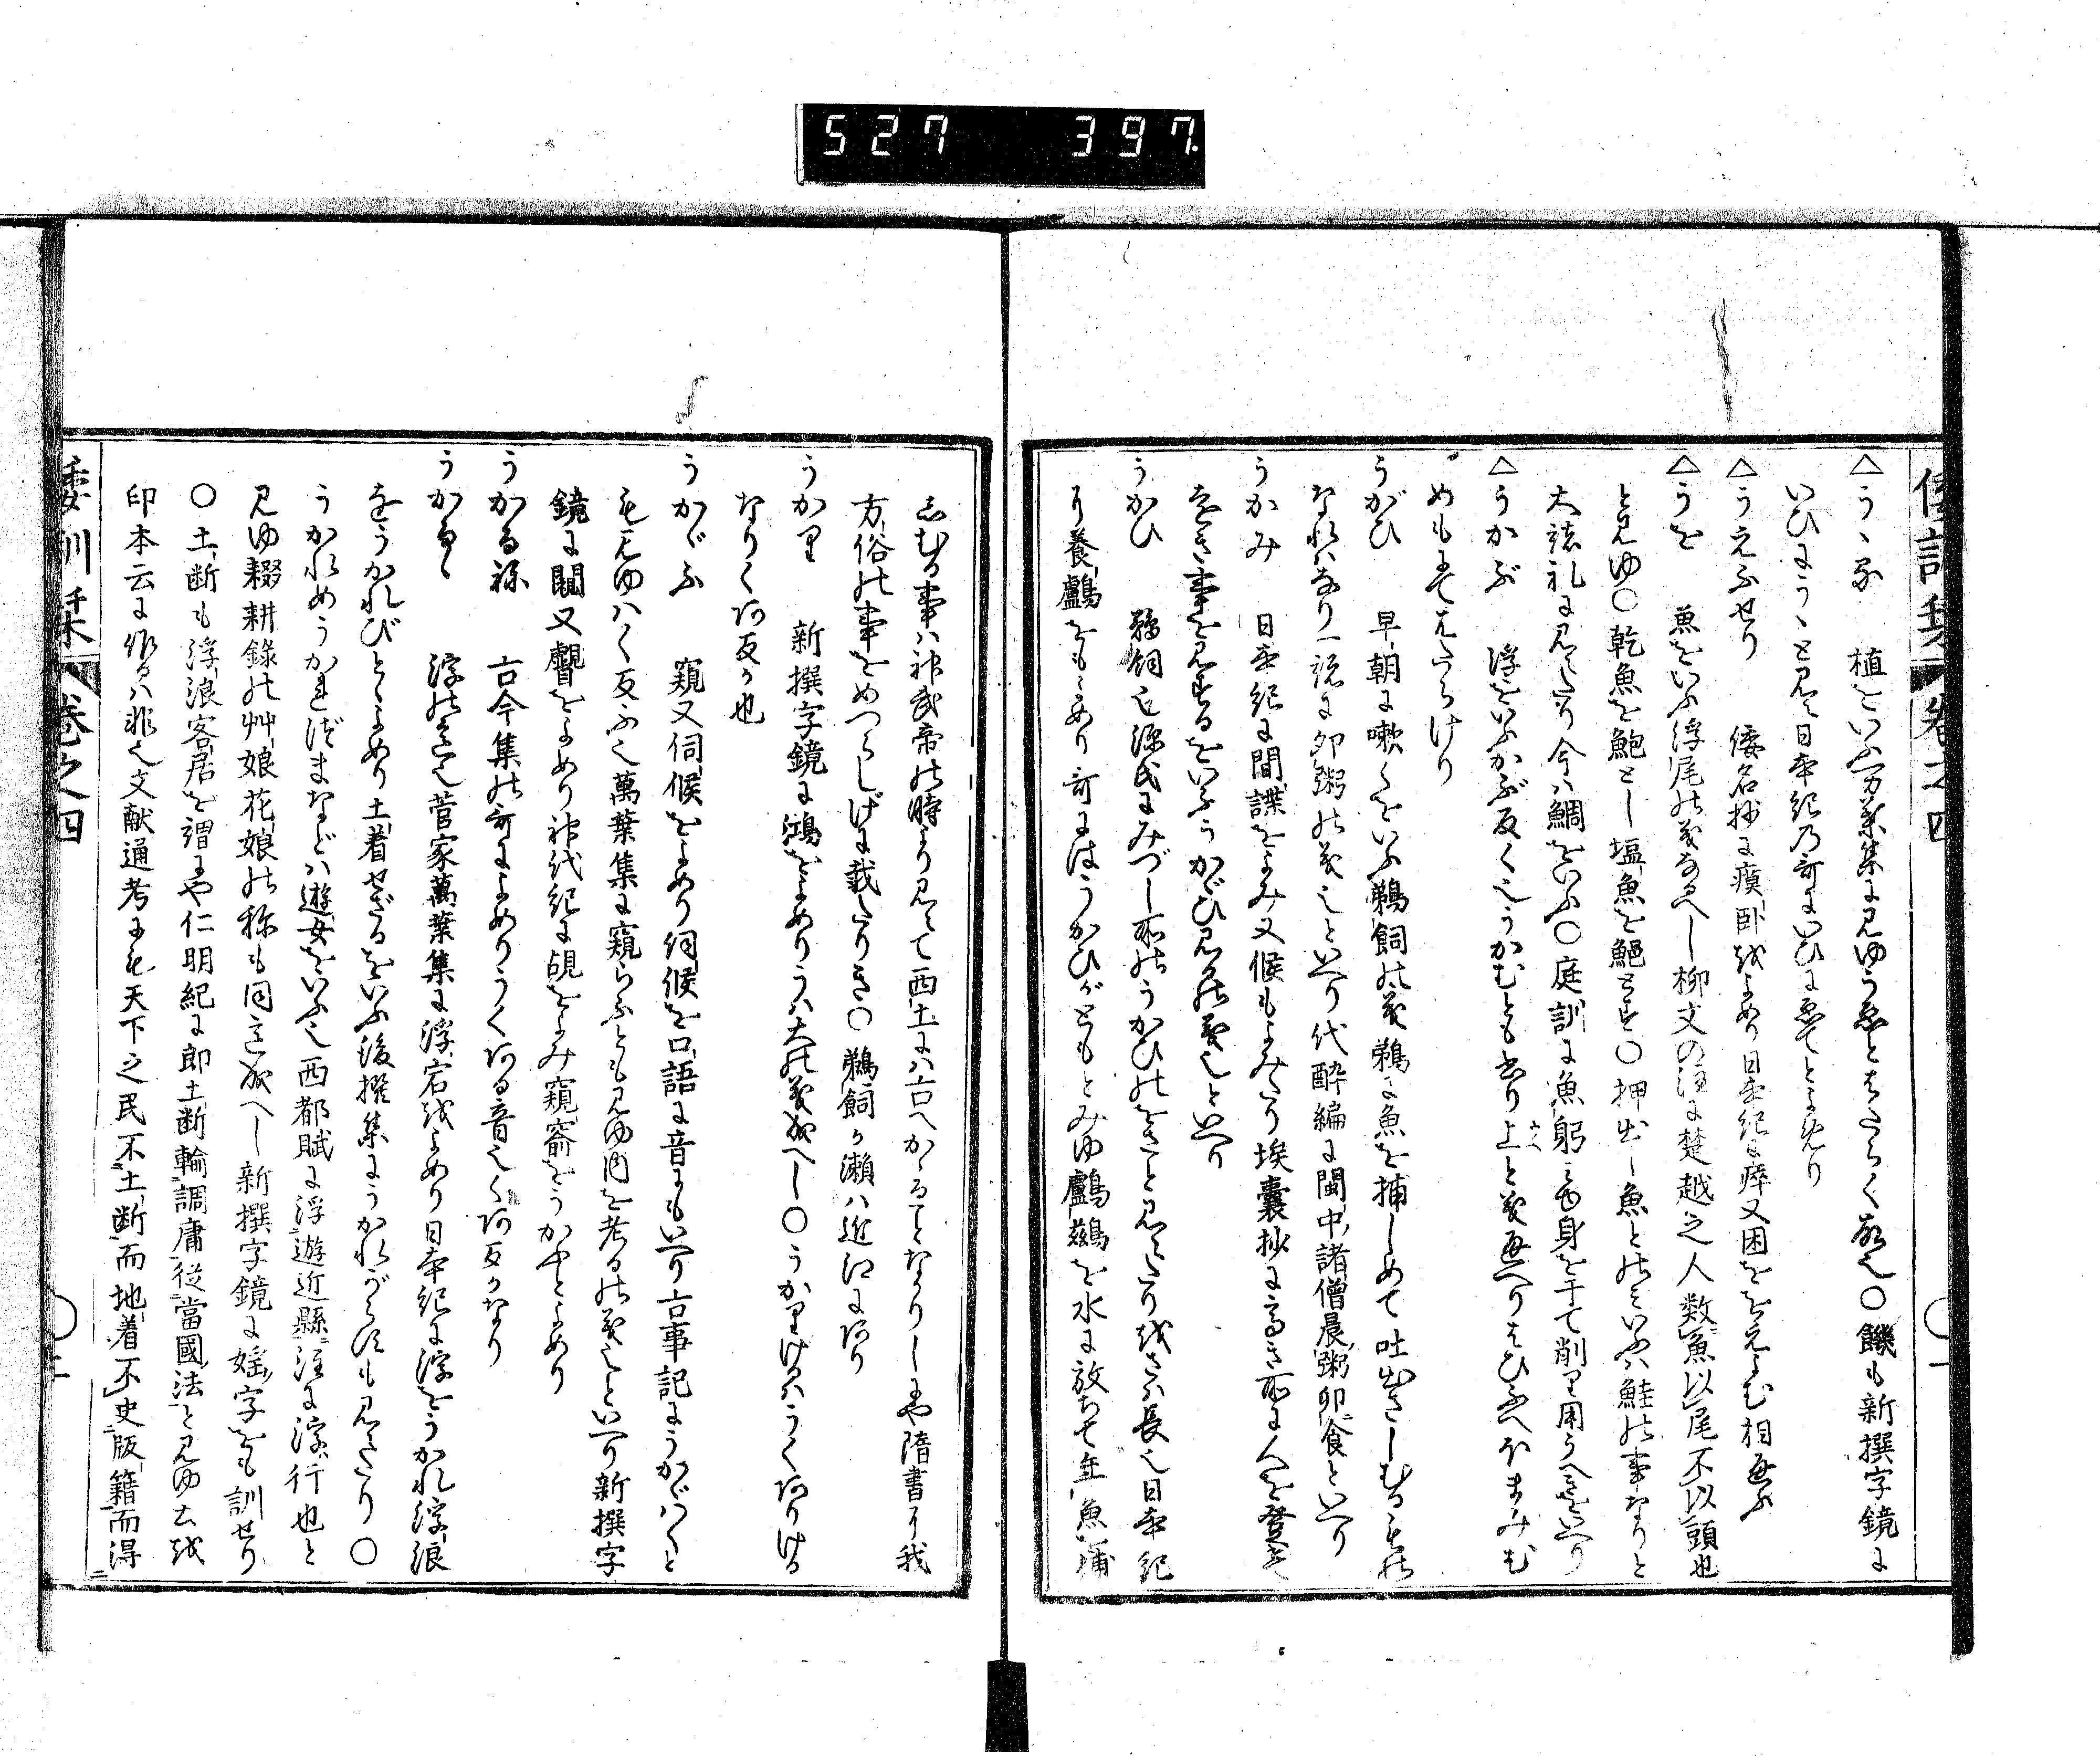 527 397.
倭訓栞 巻之四
△うゝる 植をいふ万葉集に見ゆうゑとはたらく敬也○饑も新撰字鏡に
いひにうゝと見え日本紀乃哥にいひにゑてとよめり
△うえふせり 倭名抄に瘼臥をよめり日本紀に瘁又困ををえよむ相通ふ
△うを 魚をいふ浮尾の義なるへし柳文の注に楚越之人数魚以尾不以頭也
と見ゆ○乾魚を鮑とし塩魚を鮑とす○押出し魚とのみいふハ鮭の事なりと
大諸礼に見えたり今ハ鯛をいふ○庭訓に魚躬
△うかぶ 浮をいふかぶ反く也うかむとも
めもはたらけり
うがひ 早朝に嗽くをいふ鵜飼の義鵜に魚を捕しめて吐出さしむるものゝ
なれハなり一説に卯粥の義也といへり代酔編に閩中諸僧晨粥卯食といへり
うかみ 日本紀に間諜をよみ又候もよみたり埃嚢抄に高き所に人を登せて
遠き事を見するをいふうかゞひ見るの義也といへり
うかひ 鵜飼也源氏にみづし所のうかひのをさと見えたりをさハ長也日本紀
に養鸕をもよめり哥にはうかひがともとみゆ鸕鷀を水に放ちて年魚を捕
しむる事ハ神武帝の時より見えて西土にハ古へかゝる事なかりしにや隋書に我
方俗の事をめつらしげに載たりき○鵜飼か瀬ハ近江にあり
うかり 新撰字鏡に鴻をよめりうハ大の義成へし○うかりけるハうくありける
なりくあ反か也
うかゞふ 窺又伺候をよめり伺候を口語に音にもいへり古事記にうかゞはくと
も見ゆはく反ふ也萬葉集に窺らふとも見ゆ内を考るの義也といへり新撰字
鏡に闖又覰をよめり神代紀に覘をよみ窺窬をうかやとよめり
うかる 古今集の哥によめりうくある音也くあ反かなり
うかるゝ 浮の意也菅家萬葉集に浮宕をよめり日本紀に浮をうかれ浮浪
をうかれびとゝよめり土着せざるをいふ後撰集にうかれがらすも見えたり○
うかれめうかれづまなどハ遊女をいふ也西都賦に浮遊近縣注に浮行也と
見ゆ輟耕録の艸娘花娘の称も同意成へし新撰字鏡に婬字をも訓せり
○土断も浮浪客居を謂にや仁明紀に即土断輸調庸従當國法と見ゆ云を
印本云に作るハ非也文献通考にも天下之民不土断而地着不更版籍而得
倭訓栞 巻之四